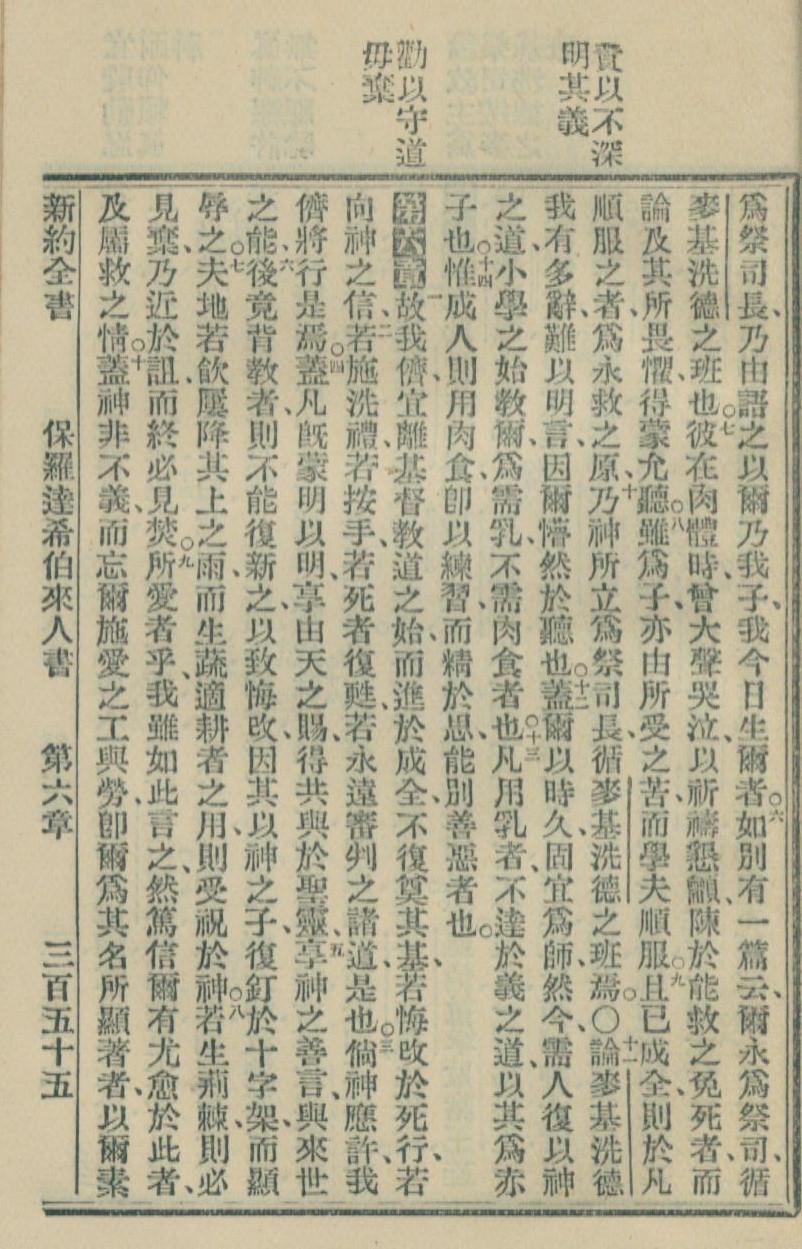 責以不深
明其義
勸以守道
毋棄
爲祭司長、乃由語之以爾乃我子、我今日生爾者○六如別有一篇云、爾永爲祭司、循
麥基洗德之班也○七彼在肉體時、曾大聲哭泣、以祈禱懇籲、陳於能救之免死者、而
論及其所畏懼、得蒙允聽○八雖爲子、亦由所受之苦、而學夫順服○九且已成全、則於凡
順服之者、爲永救之原、十乃神所立爲祭司長、循麥基洗德之班焉○〇十一論麥基洗德
我有多辭、難以明言、因爾懵然於聽也○十二蓋爾以時久、固宜爲師、然今需人復以神
之道、小學之始教爾、爲需乳、不需肉食者也○十三凡用乳者、不達於義之道、以其爲赤
子也○十四惟成人則用肉食、卽以練習、而精於思、能別善惡者也○
第六章一故我儕宜離基督教道之始、而進於成全、不復奠其基、若悔改於死行、若
向神之信、二若施洗禮、若按手、若死者復甦、若永遠審判之諸道、是也○三倘神應許、我
儕將行是焉○四蓋凡旣蒙明以明、享由天之賜、得共與於聖靈、五享神之善言、與來世
之能、六後竟背教者、則不能復新之、以致悔改、因其以神之子、復釘於十字架、而顯
辱之○七夫地若飲屢降其上之雨、而生蔬適耕者之用、則受祝於神○八若生荊棘、則必
見棄、乃近於詛、而終必見焚○九所愛者乎、我雖如此言之、然篤信爾有尤愈於此者、
及屬救之情○十蓋神非不義、而忘爾施愛之工與勞、卽爾爲其名所顯著者、以爾素
新約全書　保羅達希伯來人書　第六章　三百五十五